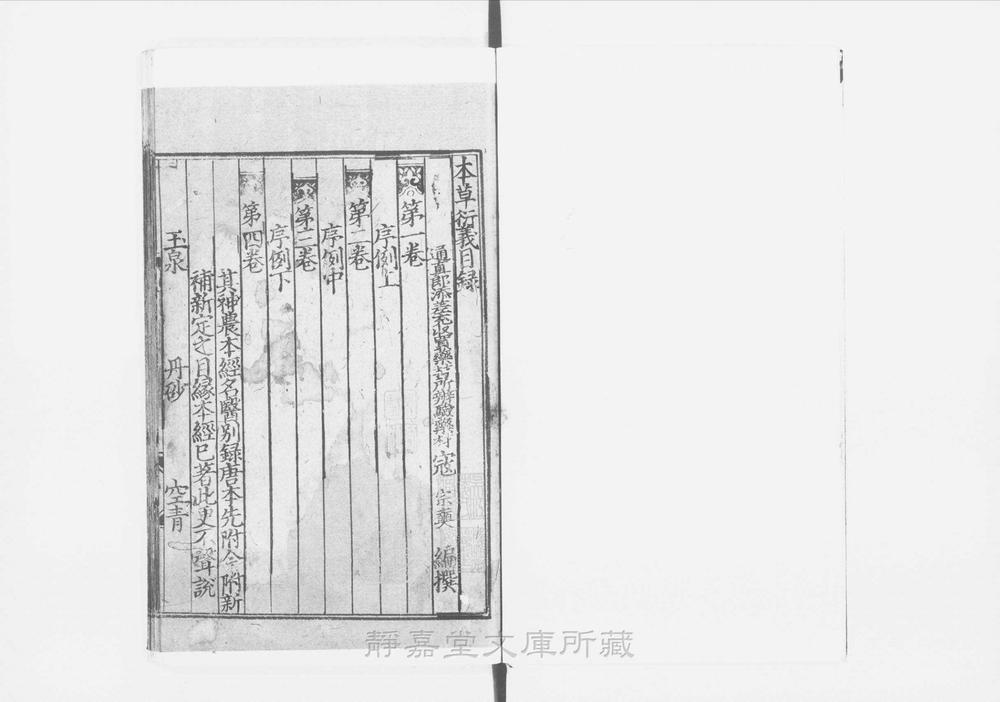 本草衍義目録
通直郎添差充收買藥材所辨驗藥材 寇 宗奭 編撰
第一卷
序例上
第二卷
序例中
第三卷
序例下
第四卷
其神農本經名醫别録唐本先附今附新
補新定之目緣本經已著此更不聲說
玉泉 丹砂 空青
靜嘉堂文庫所藏